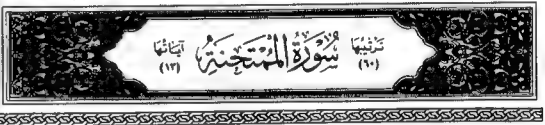 ترتيبها سورة الممتحنة آياتها
(٦٠) (١٣)